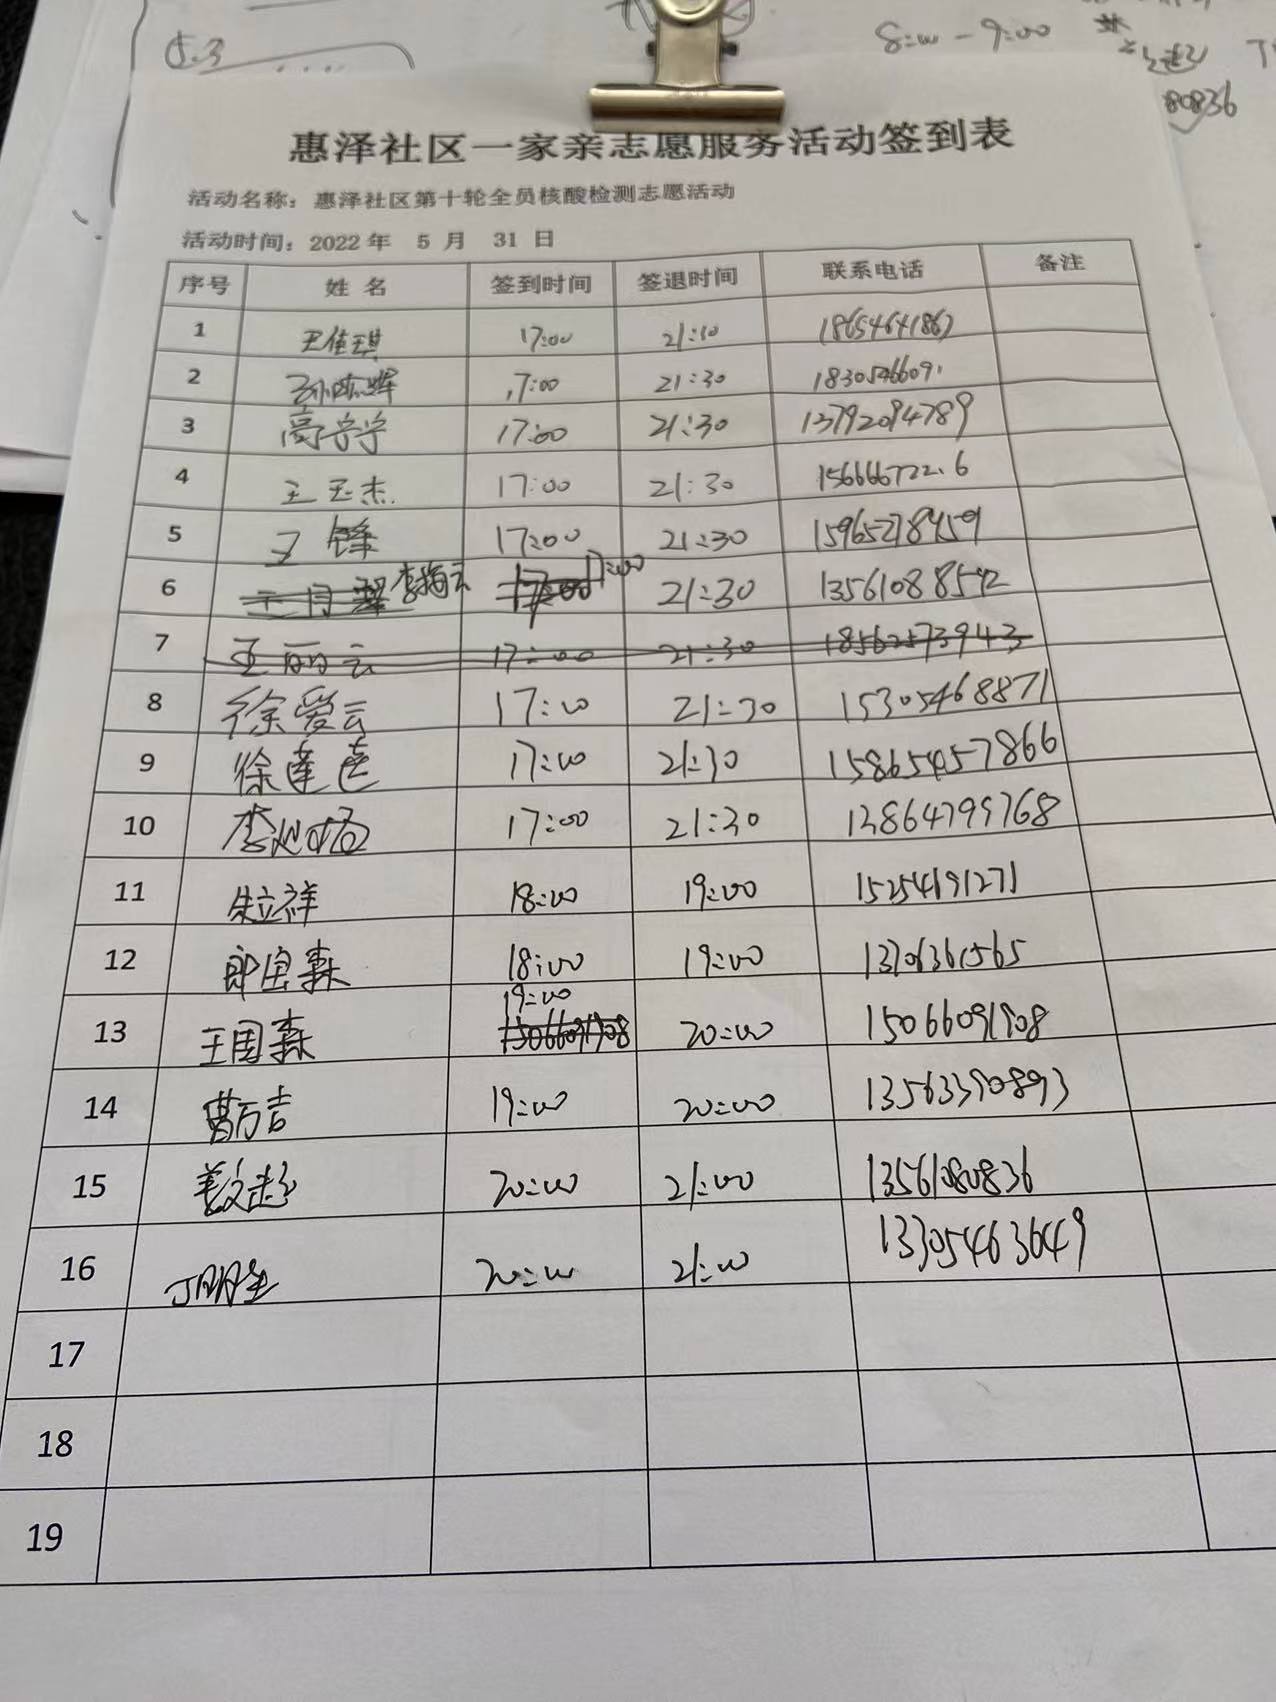 5.3
8:00-9:00
80836
惠泽社区一家亲志愿服务活动签到表
活动名称：惠泽社区第十轮全员核酸检测志愿活动
活动时间：2022 年 5 月 31 日
序号 姓 名 签到时间 签退时间 联系电话 备注
1 王佳琪 17:00 21:10
2 7:00 21:30
3 高宁宁 17:00 21:30 13792094789
4 王玉杰 17:00 21:30
5 王锋 17:00 21:30 15965278459
6 17:00 17:00 21:30 13561088542
7 王丽云 17:00 21:30 18562573943
8 徐爱云 17:00 21:30 15305468871
9 徐莲莲 17:00 21:30 15865457866
10 17:00 21:30 13864799768
11 朱立祥 18:00 19:00 15254191271
12 郎宝森 18:00 19:00 13706361565
19:00
13 王国森 15066091908 20:00 15066091908
14 曹万吉 19:00 20:00 13563390893
15 姜文起 20:00 21:00 13561080836
16 丁明生 20:00 21:00 13305463649
17
18
19